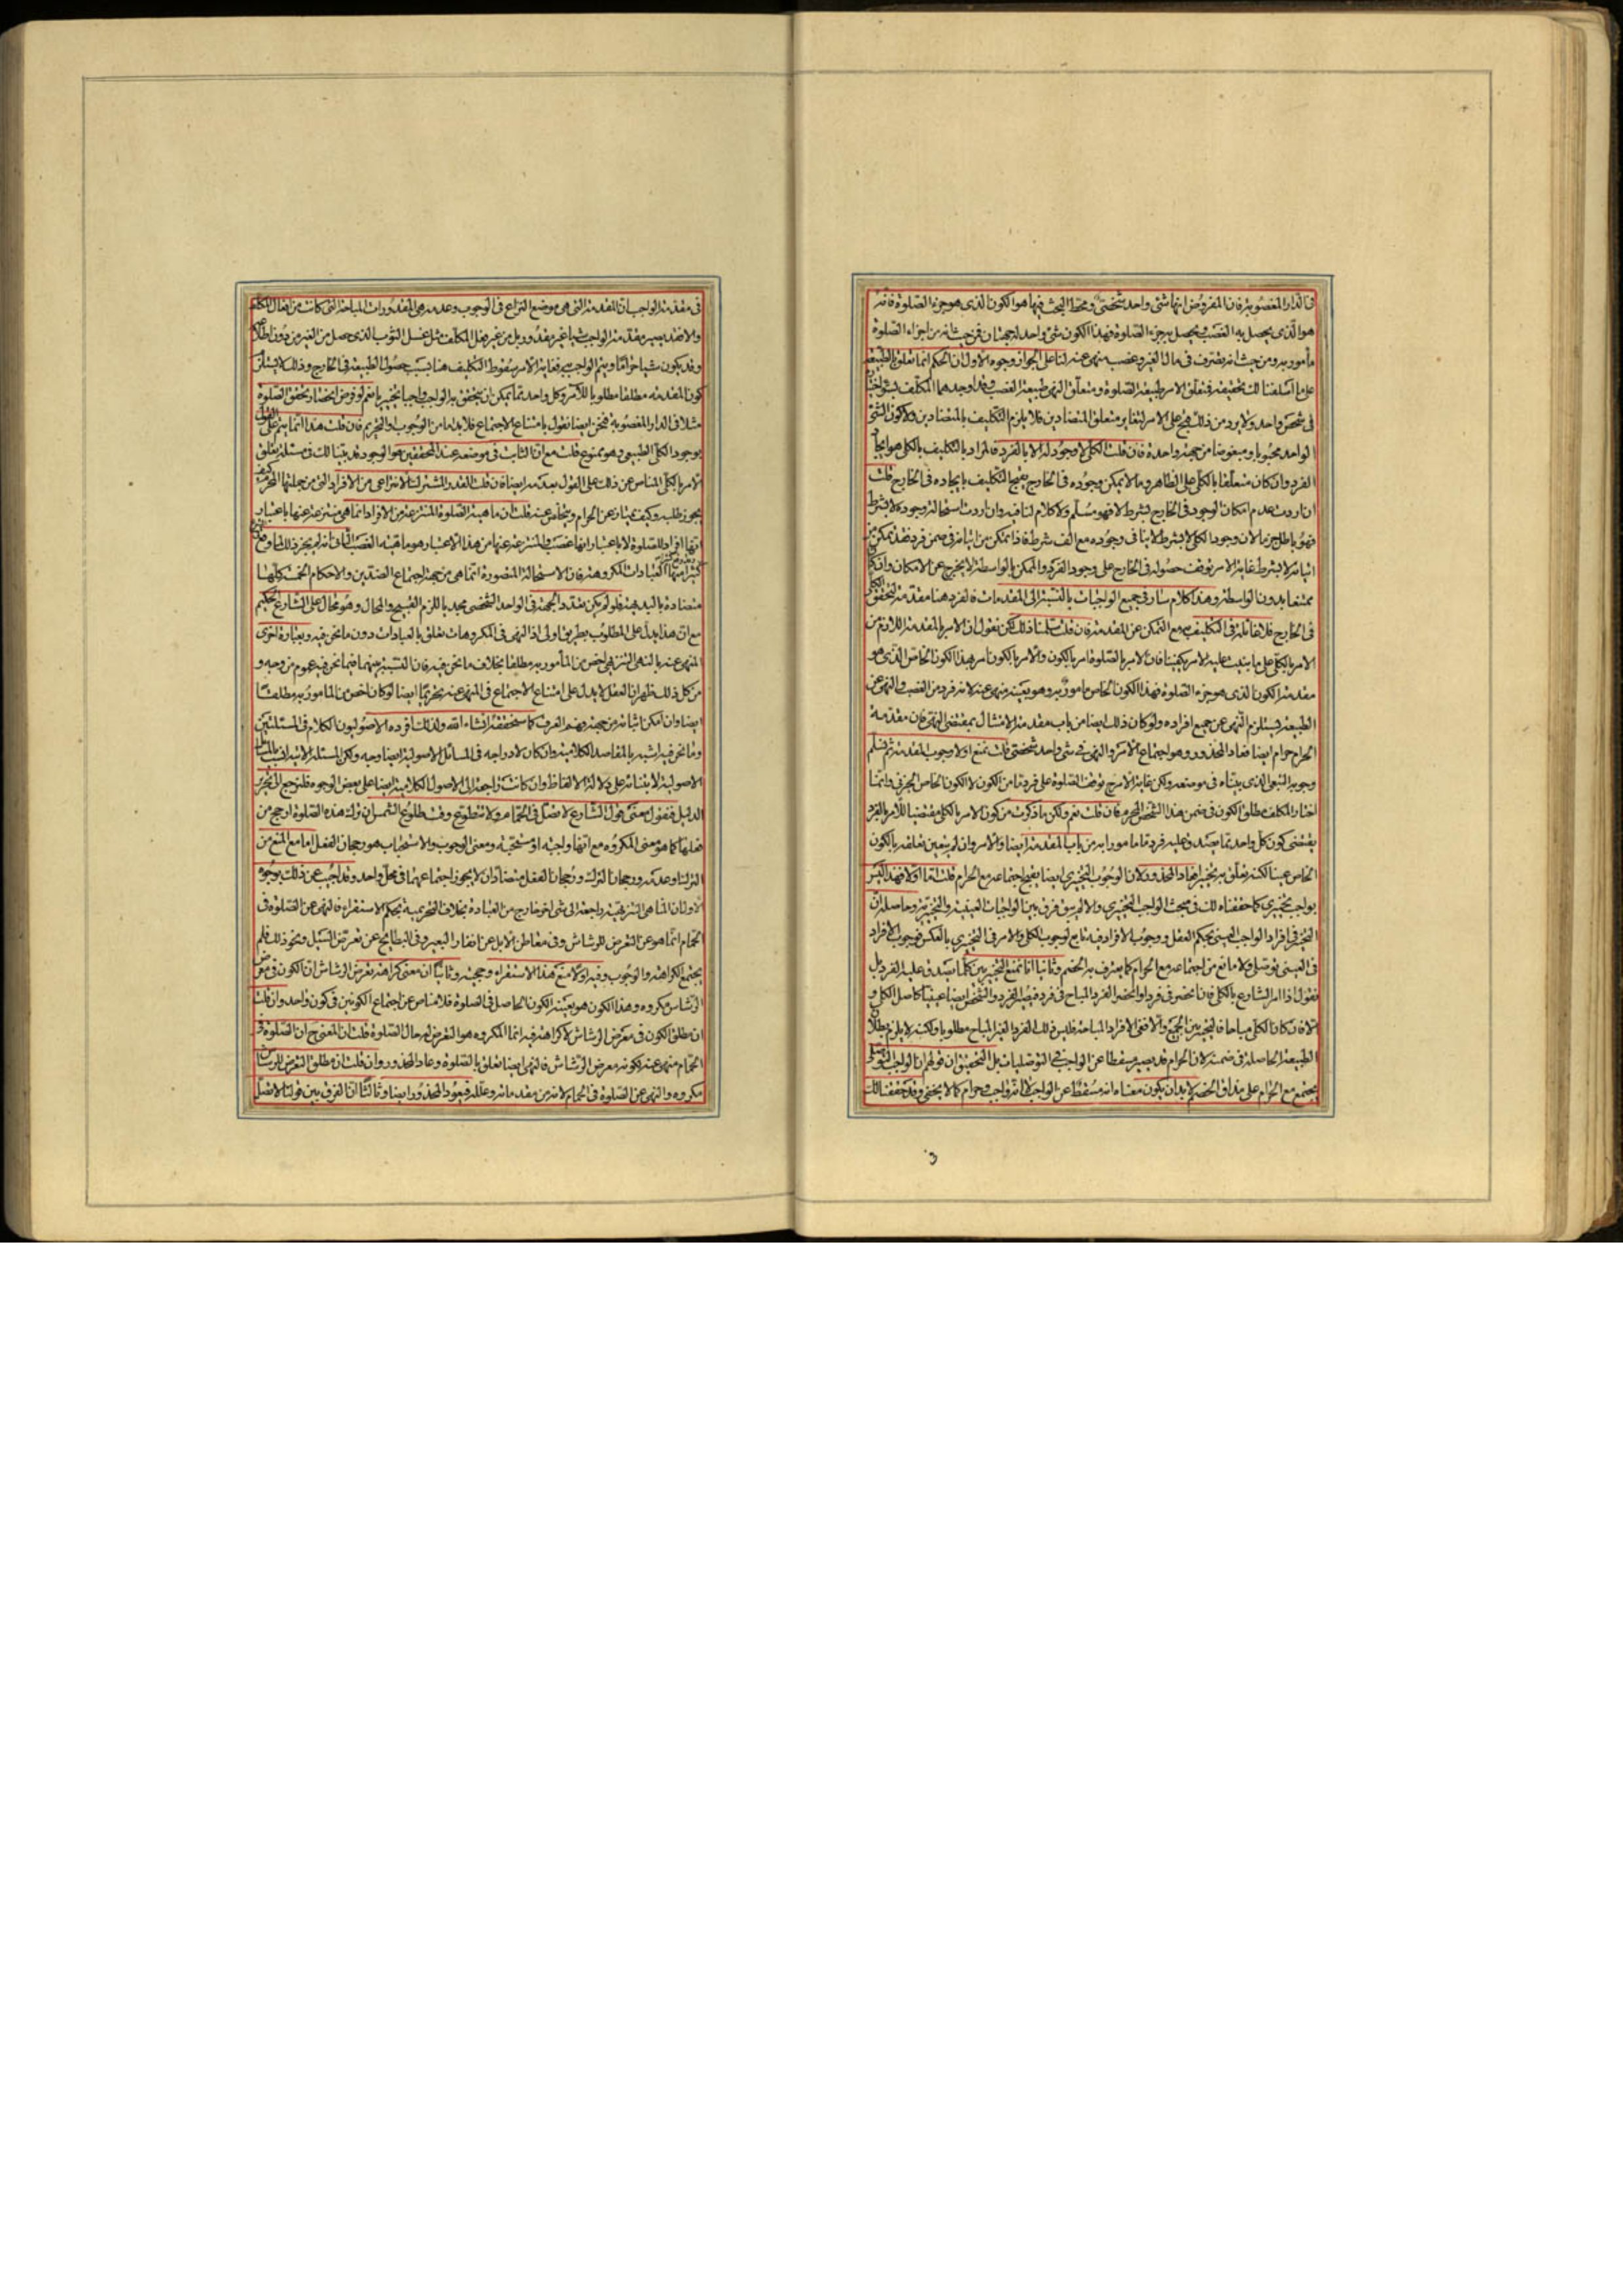 في الدار المغصوبة فان المفروض انها شئ واحد شخصي ومحط البحث فيها هو الكون الذي هو جزء الصلوة فانه
هو الذي يحصل به الغصب ويحصل به جزء الصلوة فهذا الكون شئ واحد له جهتان فمن حيث انه من اجزاء الصلوة
مأمور به ومن حيث انه تصرف في مال الغير وغصب منهي عنه لنا على الجواز وجوه الاول ان الحكم انما تعلق بالطبيعة
على ما اسلفنا لك تحقيقه فمتعلق الامر طبيعة الصلوة ومتعلق النهي طبيعة الغصب وقد اوجدهما المكلف بسوء اختياره
في شخص واحد ولا يرد من ذلك قبح على الامر لتغاير متعلق المتضادين فلا يلزم التكليف بالمتضادين ولا كون الشئ
الواحد محبوبا ومبغوضا من جهة واحدة فان قلت الكلي لا وجود له الا بالفرد فالمراد بالتكليف بالكلي هو ايجاد
الفرد وان كان متعلقا بالكلي على الظاهر وما لا يمكن وجوده في الخارج يقبح التكليف بايجاده في الخارج قلت
ان اردت عدم امكان الوجود في الخارج بشرط لا فهو مسلم ولا كلام لنا فيه وان اردت استحالة وجوده لا بشرط
فهو باطل جزما لان وجود الكلي لا بشرط لا ينافي وجوده مع الف شرط فاذا تمكن من اتيانه في ضمن فرد فقد تمكن من
اتيانه لا بشرط غاية الامر توقف حصوله في الخارج على وجود الفرد والممكن بالواسطة لا يخرج عن الامكان وان كان
ممتنعا بدون الواسطة وهذا كلام سار في جميع الواجبات بالنسبة الى المقدمات فالفرد هنا مقدمة لتحقق الكلي
في الخارج فلا غائلة في التكليف به مع التمكن عن المقدمة فان قلت سلمنا ذلك لكن نقول ان الامر بالمقدمة اللازم من
الامر بالكلي على ما بنيت عليه الامر يكفينا فان الامر بالصلوة امر بالكون والامر بالكون امر بهذا الكون الخاص الذي هو
مقدمة الكون الذي هو جزء الصلوة فهذا الكون الخاص مأمور به وهو بعينه منهي عنه لانه فرد من الغصب والنهي عن
الطبيعة يستلزم النهي عن جميع افراده ولو كان ذلك ايضا من باب مقدمة الامتثال بمقتضى النهي فان مقدمة
الحرام حرام ايضا فعاد المحذور وهو اجتماع الامر والنهي في شئ واحد شخصي قلت نمنع اولا وجوب المقدمة ثم نسلم
وجوبه التبعي الذي بيناه في موضعه ولكن غاية الامر ح توقف الصلوة على فرد ما من الكون لا الكون الخاص الجزئي وانما
اختار المكلف مطلق الكون في ضمن هذا الشخص المحرم فان قلت نعم ولكن ما ذكرت من كون الامر بالكلي مقتضيا للامر بالفرد
يقتضي كون كل واحد مما يصدق عليه فرد ما مامورا به من باب المقدمة ايضا والامر وان لم يتعين تعلقه بالكون
الخاص عينا لكنه تعلق به تخييرا فعاد المحذور لان الوجوب التخييري ايضا يقبح اجتماعه مع الحرام قلت اما اولا فهذا ليس
بواجب تخييري كما حققناه لك في مبحث الواجب التخييري والا لم يبق فرق بين الواجبات العينية والتخييرية وحاصله ان
التخيير في افراد الواجب العيني بحكم العقل ووجوب الافراد فيه تابع لوجوب الكلي والامر في التخييري بالعكس فوجوب الافراد
في العيني توصلي ولا مانع من اجتماعه مع الحرام كما يعترف به الخصم وثانيا انا نمنع التخيير بين كل ما يصدق عليه الفرد بل
نقول اذا امر الشارع بالكلي فان انحصر في فرد او انحصر الفرد المباح في فرد فيصير الفرد والشخص ايضا عينيا كاصل الكلي و
الا فان كان الكل مباحا فالتخيير بين الجميع والا ففي الافراد المباحة فليس ذلك الفرد الغير المباح مطلوبا ولكنه لا يلزم بطلان
الطبيعة الحاصلة في ضمنه لان الحرام قد يصير مسقطا عن الواجب في التوصليات بل التحقيق ان قولهم ان الواجب التوصلي
يجتمع مع الحرام على مذاق الخصم لا بد ان يكون معناه انه مسقط عن الواجب لا انه واجب وحرام كما لا يخفى وقد حققنا لك
في مقدمة الواجب ان المقدمة التي هي موضع النزاع في الوجوب وعدمه هي المقدورات المباحة التي كانت من افعال المكلف
والا فقد يصير مقدمة الواجب شيئا غير مقدور بل من غير فعل المكلف مثل غسل الثوب الذي حصل من الغير من دون اطلاعه
وقد يكون شيئا حراما ويتم الواجب به فغاية الامر سقوط التكليف هنا بسبب حصول الطبيعة في الخارج وذلك لا يستلزم
كون المقدمة مطلقا مطلوبا للآمر وكل واحد مما يمكن ان يتحقق به الواجب واجبا تخييريا نعم لو فرض انحصار تحقق الصلوة
مثلا في الدار المغصوبة فنحن ايضا نقول بامتناع الاجتماع فلا بد اما من الوجوب والتحريم فان قلت هذا انما يتم على القول
بوجود الكلي الطبيعي وهو ممنوع قلت مع ان الثابت في موضعه عند المحققين هو الوجود قد بينا لك في مسئلة تعلق
الامر بالكلي المناص عن ذلك على القول بعدمه ايضا فان قلت القدر المشترك الانتزاعي من الافراد التي من جملتها المحرم كيف
يجوز طلبه وكيف يمتاز عن الحرام ويتخلص عنه قلت ان ماهية الصلوة المنتزعة من الافراد انما هي منتزعة عنها باعتبار
انها افراد للصلوة لا باعتبار انها غصب والمنتزعة عنها من هذا الاعتبار هو ماهية الغصب الثاني انه لو لم يجز ذلك لما وقع في الشرع
كثيرا منها العبادات المكروهة فان الاستحالة المتصورة انما هي من جهة اجتماع الضدين والاحكام الخمسة كلها
متضادة بالبديهة فلو لم يكن تعدد الجهة في الواحد الشخصي مجديا للزم القبيح والمحال وهو محال على الشارع الحكيم
مع ان هذا يدل على المطلوب بطريق اولى اذ النهي في المكروهات تعلق بالعبادات دون ما نحن فيه وبعبارة اخرى
المنهي عنه بالنهي التنزيهي اخص من المأمور به مطلقا بخلاف ما نحن فيه فان النسبة بينهما فيما نحن فيه عموم من وجه و
من كل ذلك ظهر ان العقل لا يدل على امتناع الاجتماع في المنهي عنه تحريما ايضا لو كان اخص من المامور به مطلقا
ايضا وان امكن اثباته من جهة فهم العرف كما سنحققه انشاء الله ولذلك افرده الاصوليون الكلام في المسئلتين
وما نحن فيه اشبه بالمقاصد الكلامية وان كان لادراجه في المسائل الاصولية ايضا وجه ولكن المسئلة الاتية انسب بالمسائل
الاصولية لابتنائه على دلالة الالفاظ وان كانت راجعة الى الاصول الكلامية ايضا على بعض الوجوه فلنرجع الى تحرير
الدليل فنقول معنى قول الشارع لا تصل في الحمام ولا تتطوع وقت طلوع الشمس ان ترك هذه الصلوة ارجح من
فعلها كما هو معنى المكروه مع انها واجبة او مستحبة ومعنى الوجوب والاستحباب هو رجحان الفعل اما مع المنع من
الترك او عدمه ورجحان الترك ورجحان الفعل متضادان لا يجوز اجتماعهما في محل واحد وقد اجيب عن ذلك بوجوه
الاول ان المناهي التنزيهية راجعة الى شئ اخر خارج من العبادة بخلاف التحريمية بحكم الاستقراء فالنهي عن الصلوة في
الحمام انما هو عن التعرض للرشاش وفي معاطن الابل عن انفار البعير وفي البطايح عن تعرض السيل ونحو ذلك فلم
يجتمع الكراهة والوجوب وفيه اولا منع هذا الاستقراء وحجيته وثانيا ان معنى كراهة تعرض الرشاش ان الكون في معرض
الرشاش مكروه وهذا الكون هو بعينه الكون الحاصل في الصلوة فلا مناص عن اجتماع الكونين في كون واحد وان قلت
ان مطلق الكون في معرض الرشاش لا كراهة فيه انما المكروه هو التعرض له حال الصلوة قلت ان المعنى ح ان الصلوة في
الحمام منهي عنه لكونه معرض الرشاش فالنهي ايضا تعلق بالصلوة وعاد المحذور وان قلت ان مطلق التعرض للرشاش
مكروه والنهي عن الصلوة في الحمام لانه من مقدماته وعلله فيعود المحذور ايضا وثالثا ان الفرق بين قولنا لا تصل